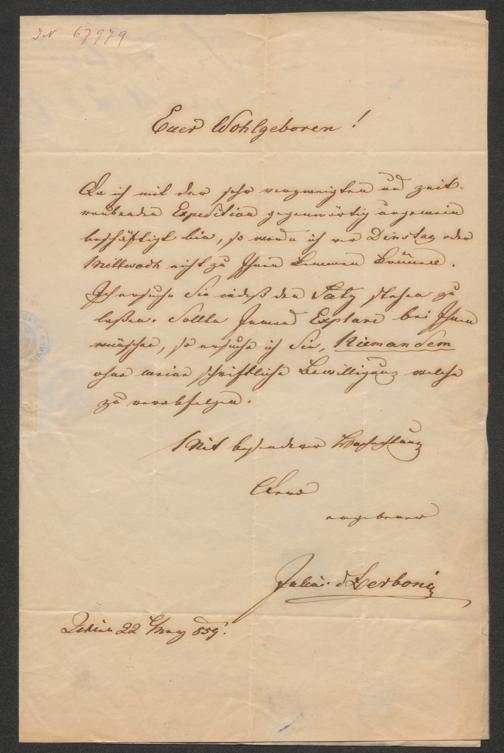 IN 67979
Euer Wohlgeboren!
Da ich mit der sehr verzweigten und zeit-
raubenden Expedition gegenwärtig ungemein
beschäftigt bin, so werde ich vor Dinstag oder
Mittwoch nicht zu Ihnen kommen können.
Ich ersuche Sie indeß den Satz stehen zu
laßen. Sollte Jemand Explare bei Ihnen
wünschen, so ersuche ich Sie, Niemandem
ohne meine schriftliche Bewilligung welche
zu verabfolgen.
Mit besonderer Hochachtung
Euer
ergebener
Julius d Zerboni
22 May 859.